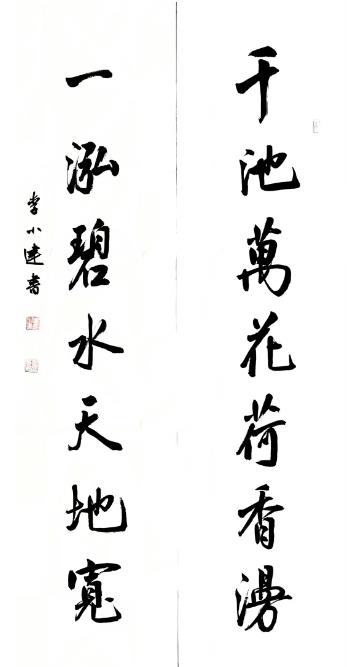 千池萬花荷香漫
一泓碧水天地寬
李小達書